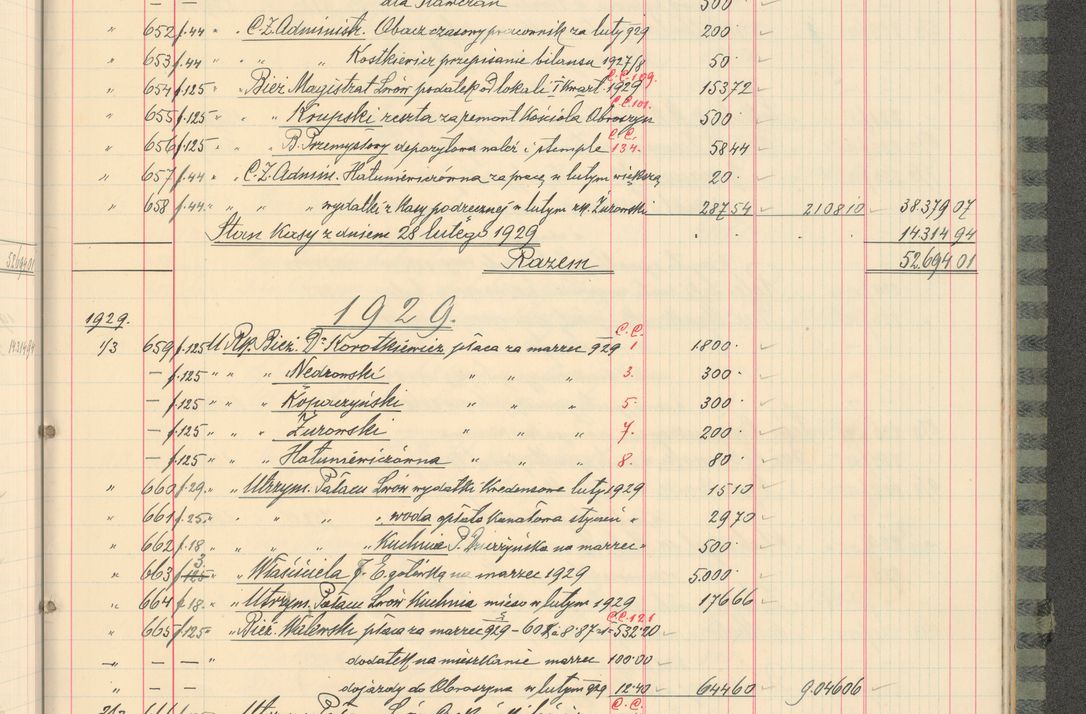 — — dla Kawczan 500·
" 652 f.44 " " C.Z. Administr. Obacz czasowy pracownik za luty 929 200·
" 653 f.44 " " " " Kostkiewicz przepisanie bilansu 1927/8 50·
C.C. 109.
" 654 f.125 " Bież. Magistrat Lwów podatek od lokali I kwart. 1929 15372
C.C. 101.
" 655 f.125 " " " Krupski reszta za remont Kościoła Obroszyn 500·
C.C.
" 656 f.125 " " " B. Przemysłowy depozytowa należ i stemple 134. 5844
" 657 f.44 " " C.Z. Admin. Hałuniewiczówna za pracę w lutym większą 20·
" 658 f.44 " " " " wydatki z Kasy podręcznej w lutym rk. Żurowski 28754 210810 38.37907
Stan Kasy z dniem 28 lutego 1929 1431494
Razem 52.69401
5269401
1929.
1929. C.C.
1431494
1/3 659 f.125 U Rp. Bież. Dr Korotkiewicz płaca za marzec 929 1 1.800·
— f.125 " " " Nedzowski " " " 3. 300·
— f.125 " " " Kopaczyński " " " 5. 300·
— f.125 " " " Żurowski " " " 7. 200·
— f.125 " " " Hałuniewiczówna " " " 8. 80·
" 660 f.29 " " Utrzym. Pałacu Lwów wydatki Kredensowe luty 1929 1510
" 661 f.25 " " " " " woda opłata Kanałowa styczeń " 2970
" 662 f.18 " " " " " Kuchnia P. na marzec " 500·
" 663 f.125 3 " " Właściciela J. E. gotówką na marzec 1929 5.000·
" 664 f.18 " " Utrzym. Pałacu Lwów Kuchnia mięso w lutym 1929 17666
C.C. 121
" 665 f.125 " " Bież. Walewski płaca za marzec 929 – 60 $ a 8·87 = 532·20
— — — " dodatek na mieszkanie marzec 100·00
" — — dojazdy do Obroszyna w lutym 929 12·40 64460 9.04606
C.C.